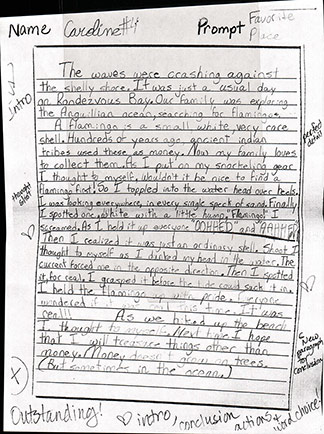 Name Caroline #4 Prompt Favorite Place
The waves were crashing against
the shelly shore. It was just a usual day
on Rondezvous Bay. Our family was exploring
the Anguillian ocean, searching for flamingos.
A flamingo is a small white very rare
shell. Hundreds of years ago ancient indian
tribes used these as money. Now my family loves
to collect them. As I put on my snorkeling gear
I thought to myself. Wouldn't it be nice to find a
flamingo first. So I toppled into the water head over heels.
I was looking everywhere, in every single speck of sand. Finally
I spotted one, white with a little hump. Flamingo! I
screamed. As I held it up everyone "OOHHED" and "AAHHED"
Then I realized it was just an ordinary shell. Shoot I
thought to myself as I dunked my head in the water. The
current forced me in the opposite direction. Then I spotted
it, for real. I grasped it before the tide could suck it in.
I held the flamingo up with pride. Everyone
wondered if it was real this time. It was
real!!! As we hiked up the beach
I thought to myself. Next time I hope
that I will treasure things other than
money. Money doesn't grow on trees.
(But sometimes in the ocean.)
intro
New paragraph to conclusion
Outstanding! ♡ intro, conclusion actions + word choice!